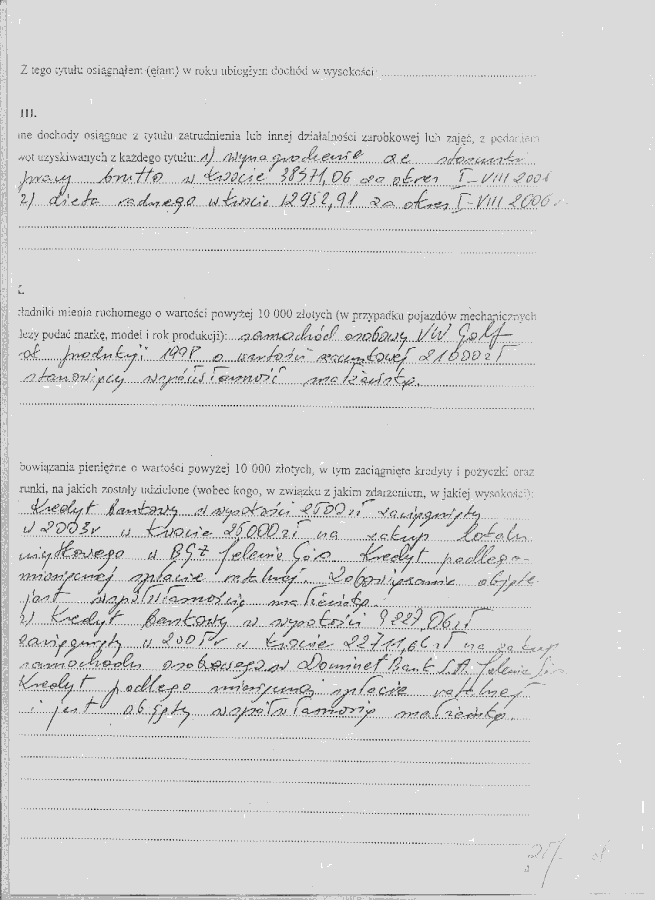 Z tego tytułu osiągnąłem (ęłam) w roku ubiegłym dochód w wysokości:
III.
ne dochody osiągane z tytułu zatrudnienia lub innej działalności zarobkowej lub zajęć, z podaniem
wot uzyskiwanych z każdego tytułu: 1) wynagrodzenie ze stosunku
pracy brutto w kwocie 38571,06 za okres I-VIII 200
2) dieta radnego w kwocie 12952,91 za okres I-VIII 2006 r
X.
kładniki mienia ruchomego o wartości powyżej 10 000 złotych (w przypadku pojazdów mechanicznych
leży podać markę, model i rok produkcji): samochód osobowy VW Golf
ok produkcji 1998 o wartości 21000 zł
stanowiący współwłasność małżeńską.
bowiązania pieniężne o wartości powyżej 10 000 złotych, w tym zaciągnięte kredyty i pożyczki oraz
runki, na jakich zostały udzielone (wobec kogo, w związku z jakim zdarzeniem, w jakiej wysokości):
Kredyt bankowy w wysokości zł zaciągnięty
w 2003r w kwocie 25000 zł na zakup lokalu
użytkowego w BGŻ Jelenia Góra. Kredyt podlega
miesięcznej spłacie ratalnej. Zobowiązanie objęte
jest współwłasnością małżeńską.
2) Kredyt bankowy w wysokości 9227,06 zł
zaciągnięty w 2005r w kwocie 22711,66 zł na zakup
samochodu osobowego w Dominet Bank S.A. Jelenia Góra
Kredyt podlega miesięcznej spłacie ratalnej
i jest objęty współwłasnością małżeńską.